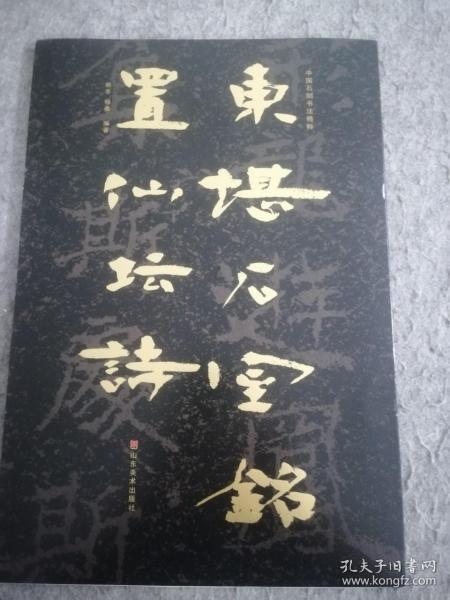 中国石刻书法精粹
東堪石室銘
置仙坛詩
山东美术出版社
孔夫子旧书网
www.kongfz.com